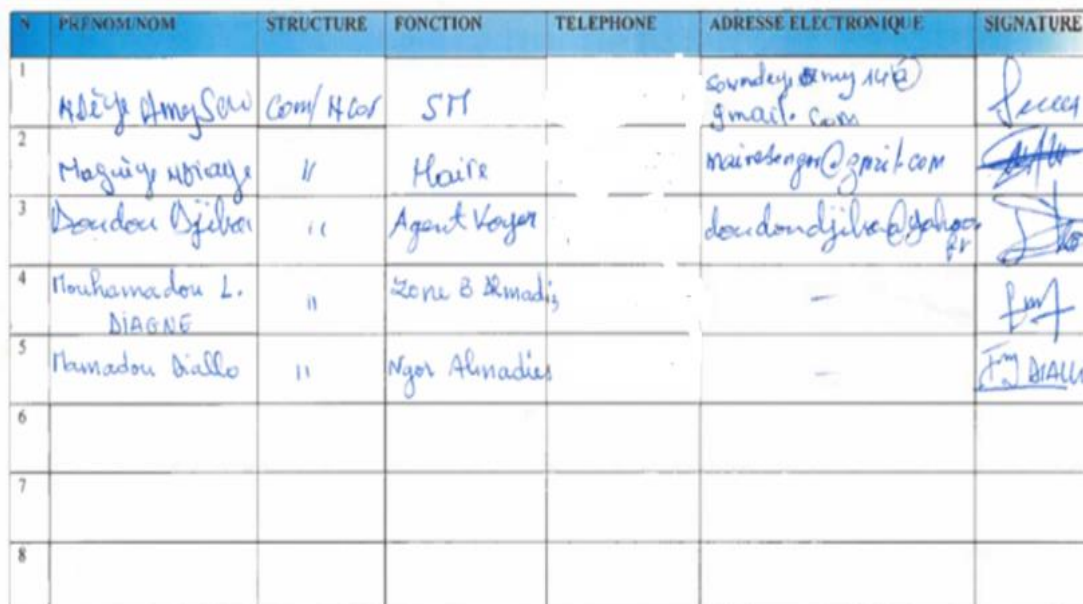 N PRENOM/NOM STRUCTURE FONCTION TELEPHONE ADRESSE ELECTRONIQUE SIGNATURE
1 Ndèye Amy Sow Com/Ngor SM sowndeyeamy14@
gmail.com
2 Maguèye Ndiaye " Maire mairiengor@gmail.com
3 Doudou Djiba " Agent Voyer doudoudjiba@yahoo.
fr
4 Mouhamadou L. " Zone B Almadies -
DIAGNE
5 Mamadou Diallo " Ngor Almadies - DIALLO
6
7
8